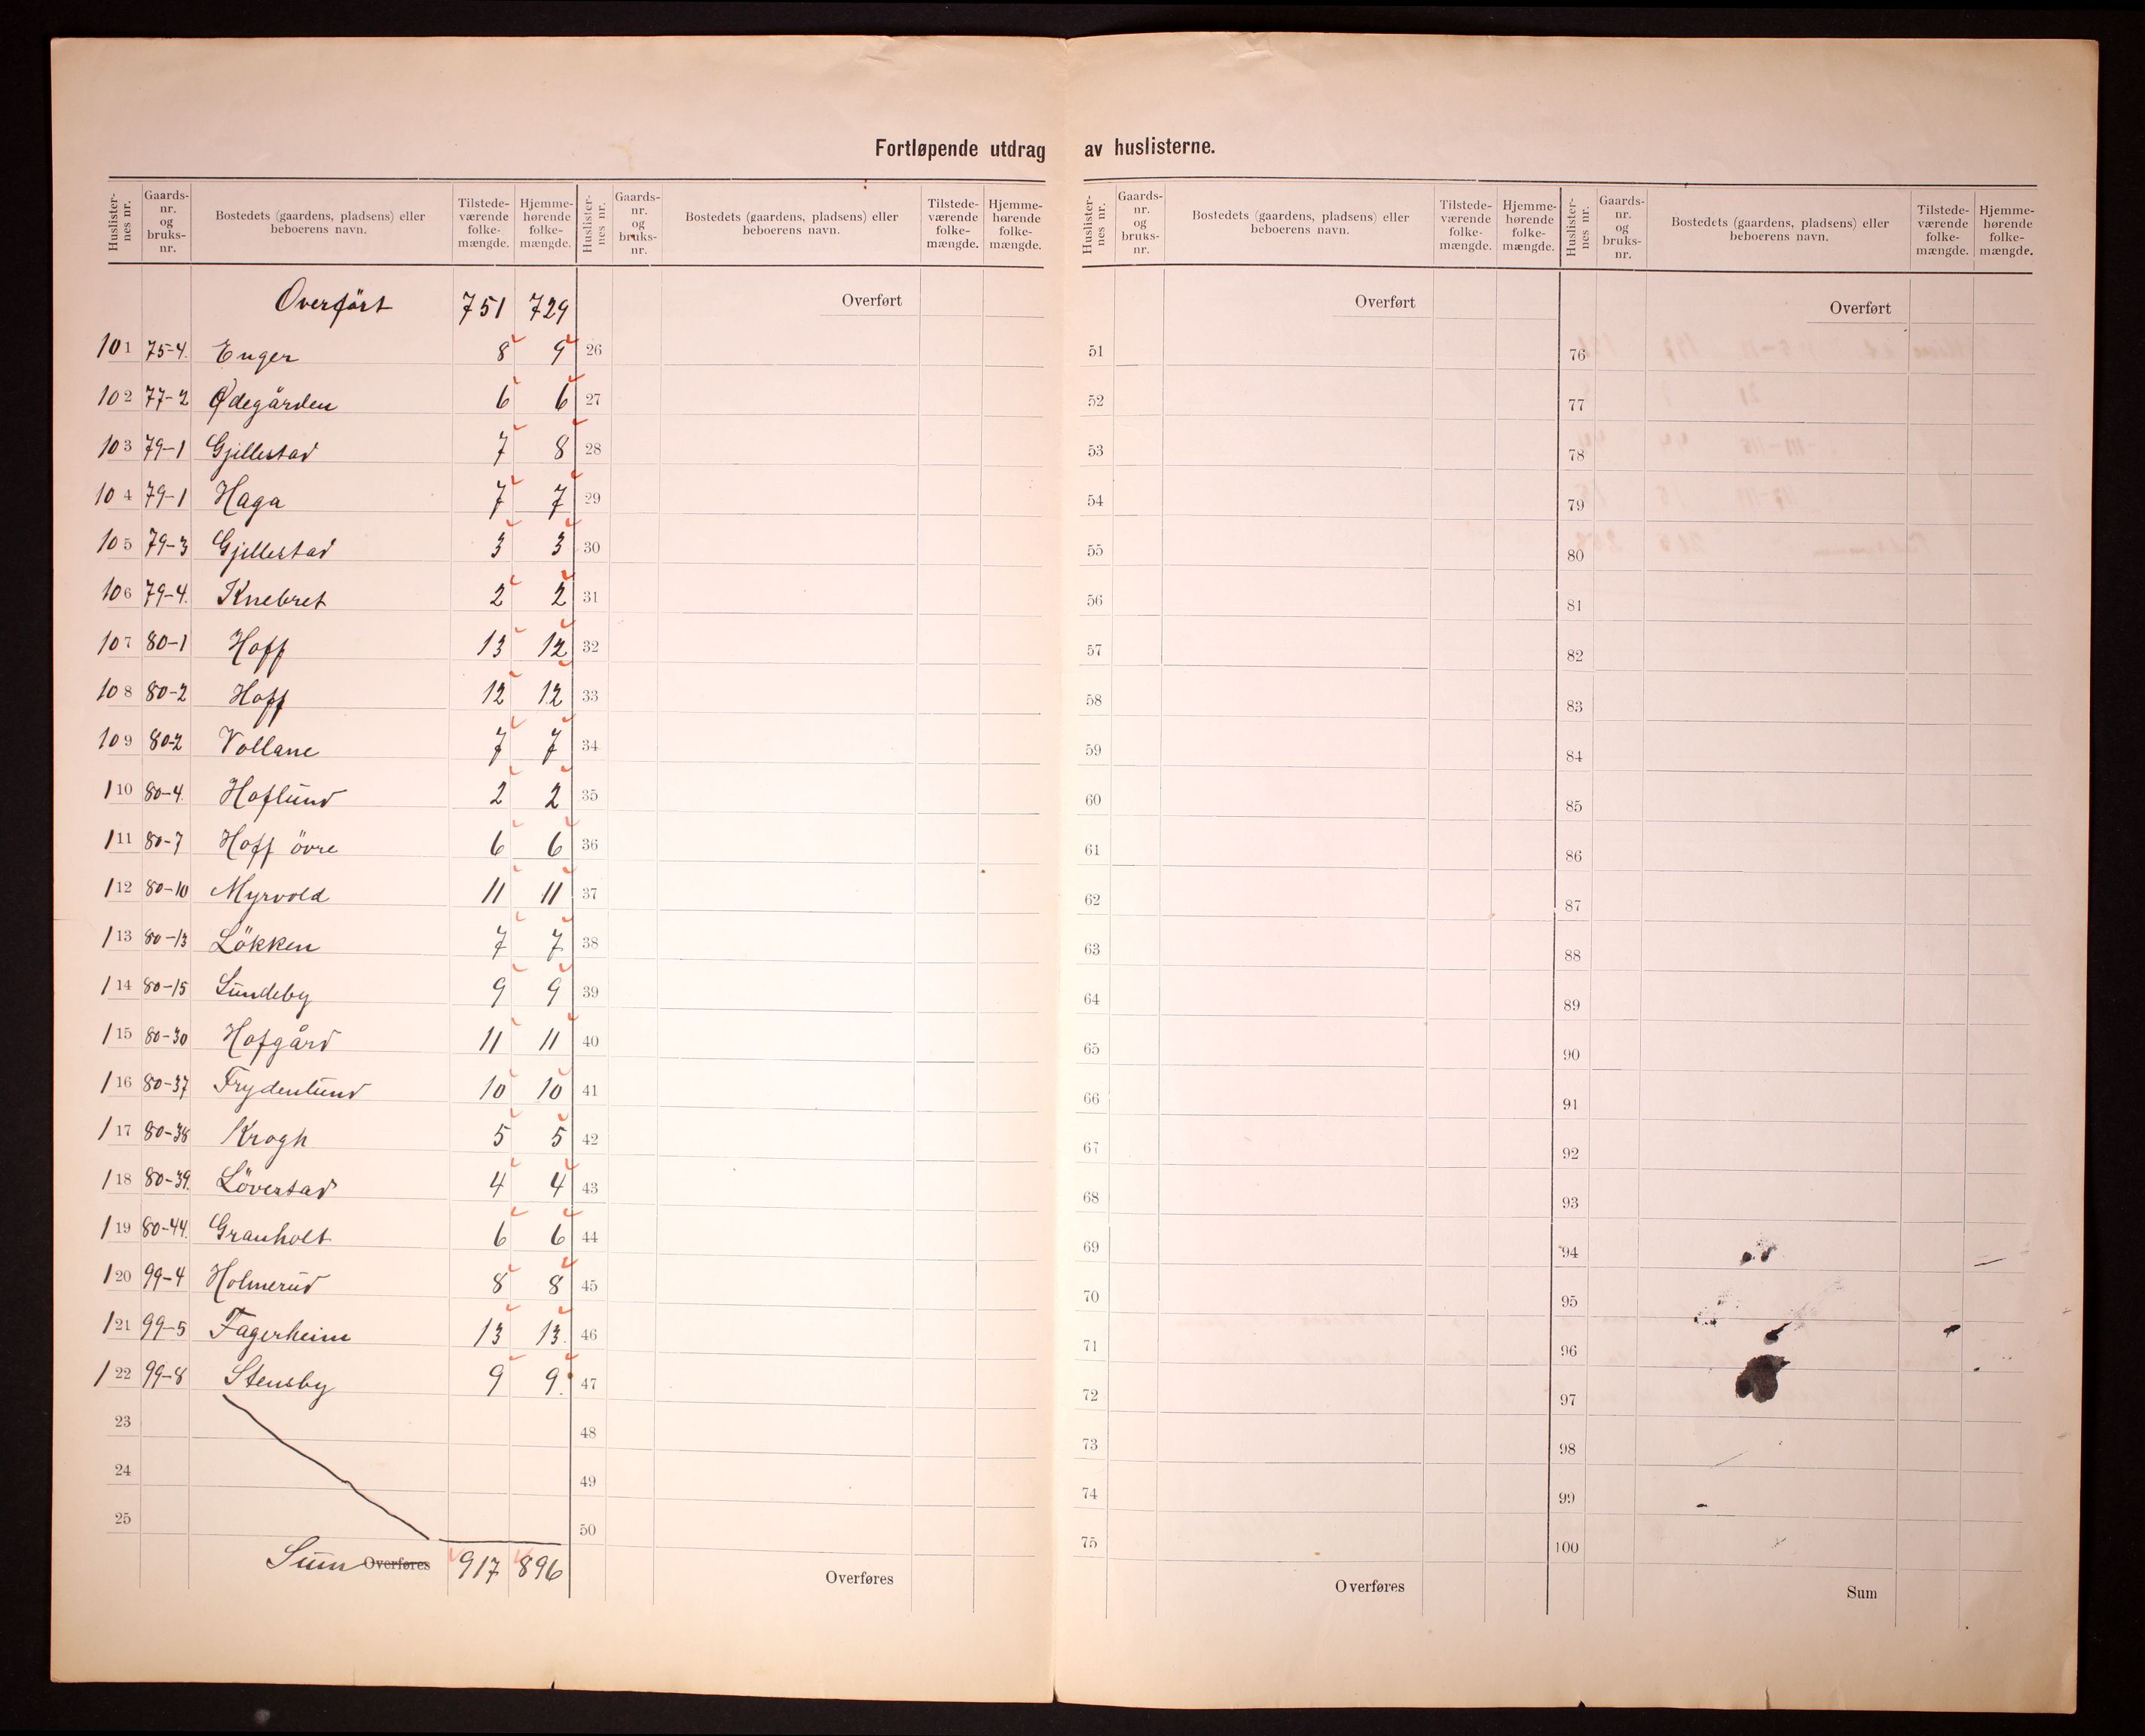 Fortløpende utdrag av huslisterne.
Huslister-nes nr. Gaards-nr. og bruks-nr. Bostedets (gaardens, pladsens) eller beboerens navn. Tilstede-værende folke-mængde. Hjemme-hørende folke-mængde.
Overført 751 729
101 75-4. Enger 8 9
102 77-2 Ødegården 6 6
103 79-1 Gjillestad 7 8
104 79-1 Haga 7 7
105 79-3 Gjillestad 3 3
106 79-4. Knebret 2 2
107 80-1 Hoff 13 12
108 80-2 Hoff 12 12
109 80-2 Vollane 7 7
110 80-4. Hoflund 2 2
111 80-7 Hoff övre 6 6
112 80-10 Myrvold 11 11
113 80-13 Lökken 7 7
114 80-15 Sundeby 9 9
115 80-30 Hofgård 11 11
116 80-37 Frydenlund 10 10
117 80-38 Krogh 5 5
118 80-39. Lövestad 4 4
119 80-44. Granholt 6 6
120 99-4 Holmerud 8 8
121 99-5 Fagerheim 13 13.
122 99-8 Stensby 9 9.
23
24
25
Sum Overføres 917 896
Huslister-nes nr. Gaards-nr. og bruks-nr. Bostedets (gaardens, pladsens) eller beboerens navn. Tilstede-værende folke-mængde. Hjemme-hørende folke-mængde.
Overført
26
27
28
29
30
31
32
33
34
35
36
37
38
39
40
41
42
43
44
45
46
47
48
49
50
Overføres
Huslister-nes nr. Gaards-nr. og bruks-nr. Bostedets (gaardens, pladsens) eller beboerens navn. Tilstede-værende folke-mængde. Hjemme-hørende folke-mængde.
Overført
51
52
53
54
55
56
57
58
59
60
61
62
63
64
65
66
67
68
69
70
71
72
73
74
75
Overføres
Huslister-nes nr. Gaards-nr. og bruks-nr. Bostedets (gaardens, pladsens) eller beboerens navn. Tilstede-værende folke-mængde. Hjemme-hørende folke-mængde.
Overført
76
77
78
79
80
81
82
83
84
85
86
87
88
89
90
91
92
93
94
95
96
97
98
99
100
Sum